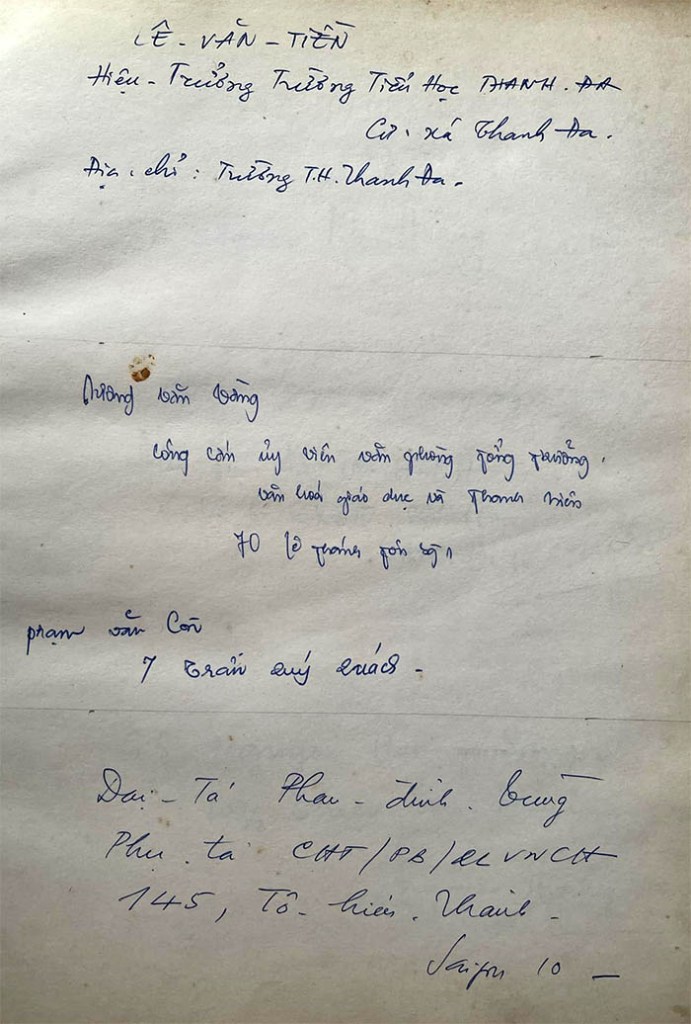 LÊ - VĂN - TIỀN
Hiệu - Trưởng Trường Tiểu Học THANH - ĐA
Cư xá Thanh Đa.
Địa chỉ : Trường T.H. Thanh Đa.
Trương văn Vàng
Công cán ủy viên văn phòng tổng trưởng.
văn hoá giáo dục và Thanh niên
70 Lê Thánh Tôn SG
Phạm văn Còn
7 Trần Quý Quách -
Đại - Tá Phan - đình Tùng
Phụ tá CHT/PB/QLVNCH
145, Tô - hiến Thành -
Saigon 10 -